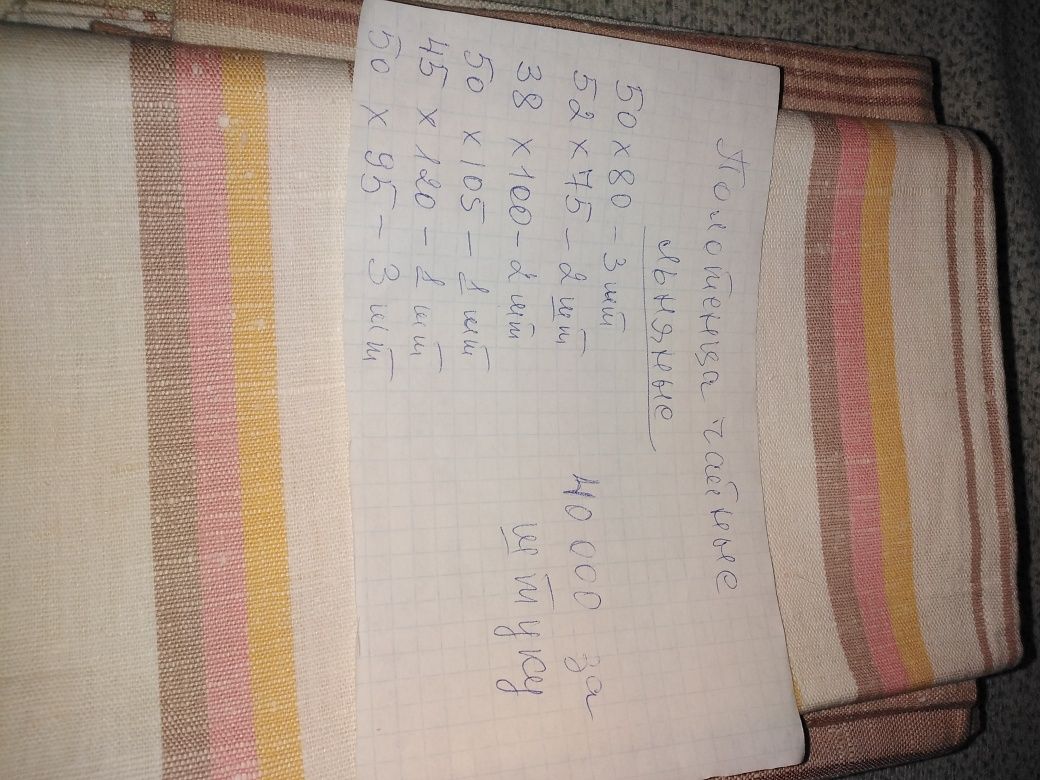 Полотенца чайные
льняные
50 х 80 - 3 шт
52 х 75 - 2 шт
38 х 100 - 2 шт
50 х 105 - 1 шт
45 х 120 - 1 шт
50 х 95 - 3 шт
40 000 за
штуку